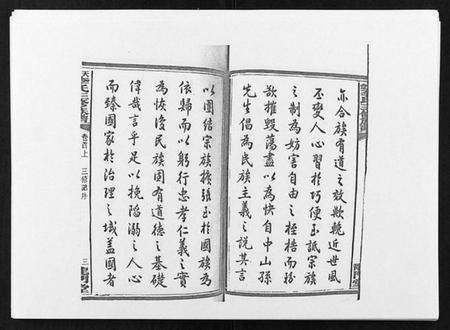 亦合族有道之效歟晚近世風
丕變人心習於巧便至詆宗族
之制為妨害自由之桎梏而紛
欲摧毀蕩盡以為快自中山孫
先生倡為民族主義之說其言
以團結宗族擴張至於國族為
依歸而以躬行忠孝仁義之實
為恢復民族固有道德之基礎
偉哉言乎足以挽陷溺之人心
而臻國家於治理之域蓋國者
氏三修族譜 卷首上 三修譜序 三 堂